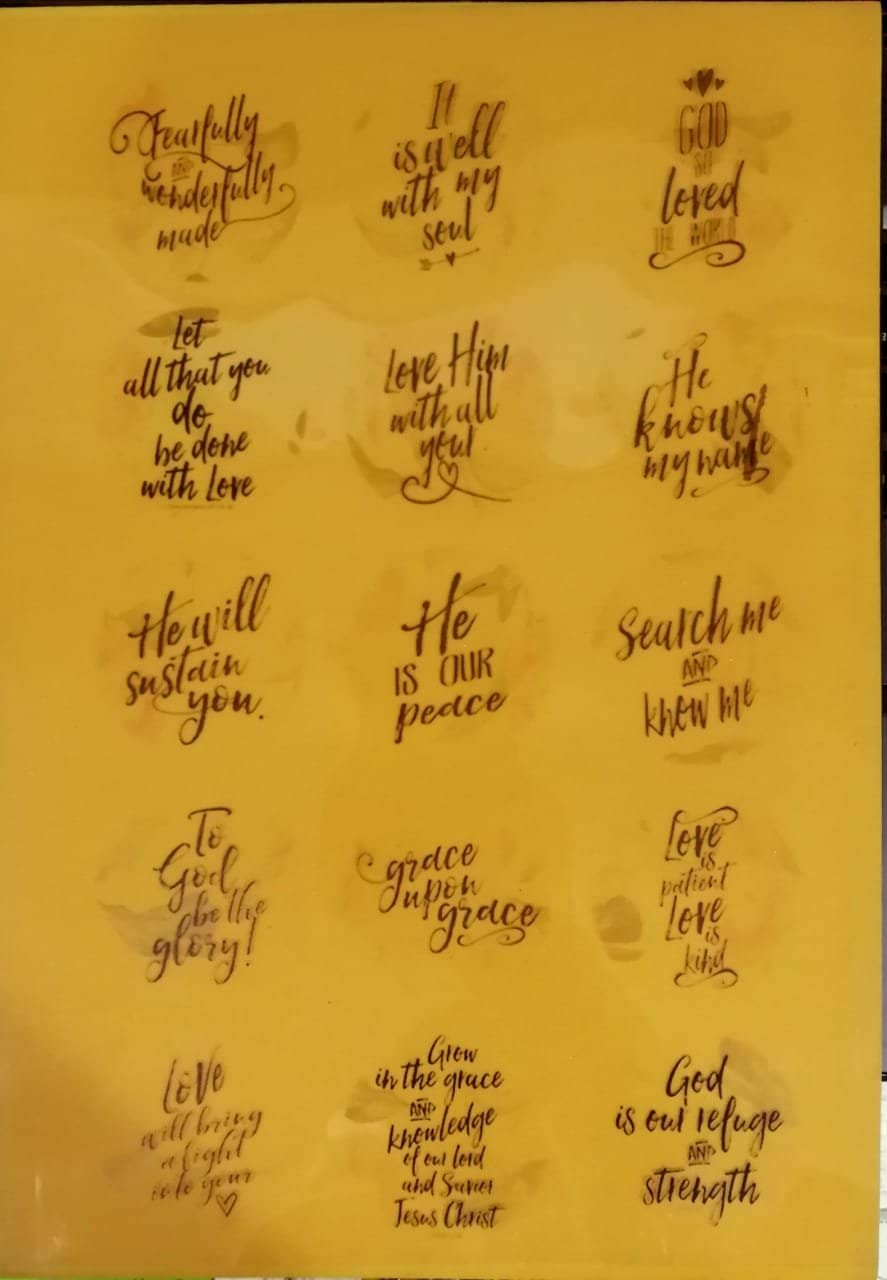 Fearfully
AND
wonderfully
made
It
is well
with my
soul
GOD
SO
loved
THE WORLD
Let
all that you
do
be done
with Love
Love Him
with all
your
He
knows
my name
He will
sustain
you.
He
IS OUR
peace
Search me
AND
know me
To
God
be the
glory!
grace
upon
grace
Love
is
patient
Love
is
kind
Love
will bring
a light
into your
Grow
in the grace
AND
knowledge
of our lord
and Savior
Jesus Christ
God
is our refuge
AND
strength